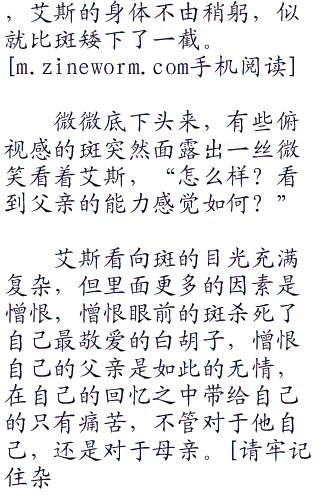 ，艾斯的身体不由稍躬，似
就比斑矮下了一截。
[m.zineworm.com手机阅读]
微微底下头来，有些俯
视感的斑突然面露出一丝微
笑看着艾斯，“怎么样？看
到父亲的能力感觉如何？”
艾斯看向斑的目光充满
复杂，但里面更多的因素是
憎恨，憎恨眼前的斑杀死了
自己最敬爱的白胡子，憎恨
自己的父亲是如此的无情，
在自己的回忆之中带给自己
的只有痛苦，不管对于他自
己，还是对于母亲。[请牢记
住杂